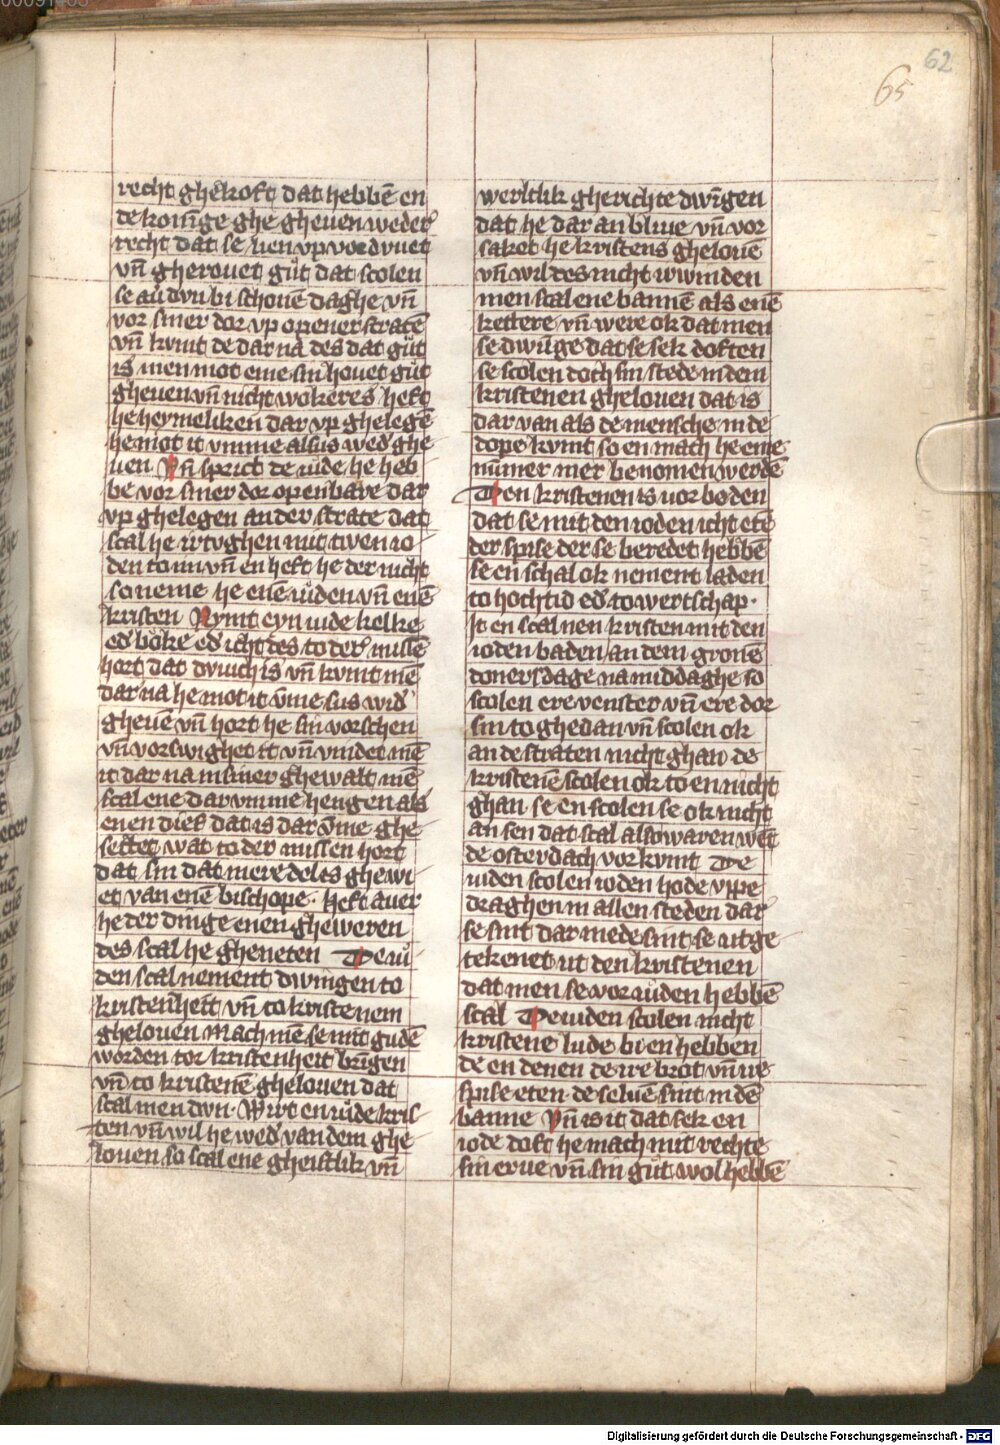 62
65
recht ghekoft dat hebbē en
de konīge ghe gheuen weder
recht dat se lien vp vordvuet
vn̄ gherouet gůt dat scolen
se aū dvn bi schonē daghe vn̄
vor siner dor vp opener stratē
vn̄ kvmt de dar na des dat gůt
is men mot eme sin houet gůt
gheuen vn̄ nicht wokeres heft
he heymeliken dar vp ghelegē
he mot it vmme alsus wed̄ ghe
uen Vn̄ sprict de iůde he heb
be vor siner dor openbare dar
vp ghelegen an der strate dat
scal he irtvghen mit twen io
den to im vn̄ en heft he der nicht
so neme he enē iůden vn̄ enē
kristen Nymt eyn iude kelke
ed̄ bőke ed̄ icht des to der missē
hort dat dvuich is vn̄ kvmt mē
dar na he mot it v̄me sus wid̄
gheuē vn̄ hort he sin vorschen
vn̄ vorswighet it vn̄ vindet mē
it dar na in siner ghewalt mē
scal ene dar vmme hengen als
enen dief dat is dar v̄me ghe
settet wat to der missen hort
dat sin dat mere del is ghewi
et van enē bischope · heft auer
he der dinge enen gheweren
des scal he gheneten De iů
den scal nement dwingen to
kristenheit vn̄ to kristenem
ghelouen Mach mē se mit gudē
worden tor kristenheit brīgen
vn̄ to kristenē ghelouen dat
scal men dvn · Wirt en iůde kris
ten vn̄ wil he wed̄ van dem ghe
louen so scal ene gheistlik vn̄
werltlik gherichte dwīgen
dat he dar an bliue vn̄ vor
saket he kristens ghelouē
vn̄ wil des nicht irwinden
men scal ene bannē als enē
kettere vn̄ were ok dat men
se dwūge dat se sek doften
se scolen doch sin stede in dem
kristenen ghelouen dat is
dar van als de mensche in de
dope kvmt so en mach he eme
nūmer mer benomen werdē
Den kristenen is uor boden
dat se mit den ioden icht etē
der spise der se beredet hebbē
se en schal ok nement laden
to hochtid ed̄ to wertschap ·
It en scal nen kristen mit den
ioden baden an dem gronē
donersdage na middaghe so
scolen ere venster vn̄ ere dor
sin to ghedan vn̄ scolen ok
an de straten nicht ghan de
kristenē scolen ok to en nicht
ghan · se en scolen se ok nicht
an sen dat scal also waren wēt
de osterdach vor kvmt De
iuden scolen ioden hode vppe
draghen in allen steden dar
se sint dar mede sint se utge
tekenet ut den kristenen
dat men se vor iuden hebbē
scal De iuden scolen nicht
kristene lude bi en hebben
de en denen de ire brot vn̄ ire
spise eten · de seluē sint in dē
banne Vn̄ is it dat sek en
iode doft he mach mit rechte
sin erue vn̄ sin gůt wol hebbē
Digitalisierung gefördert durch die Deutsche Forschungsgemeinschaft - DFG